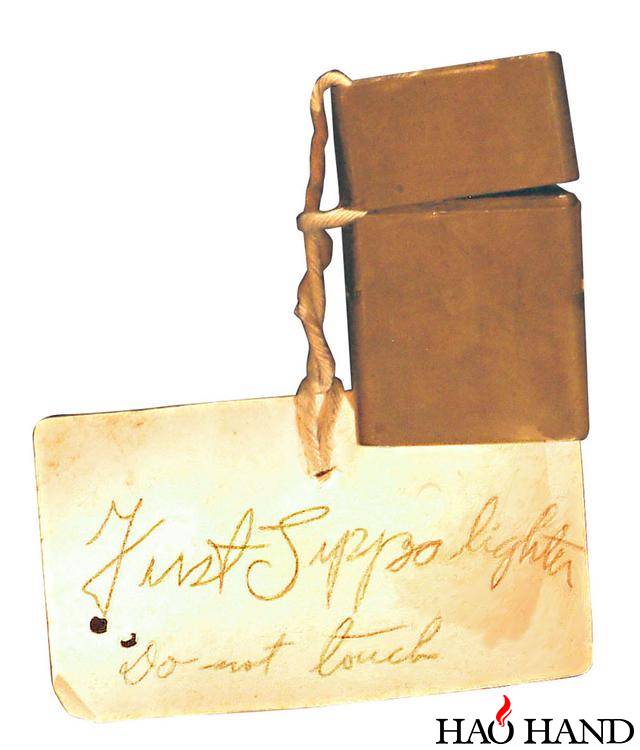 First Zippo lighter
Do not touch
HAO HAND